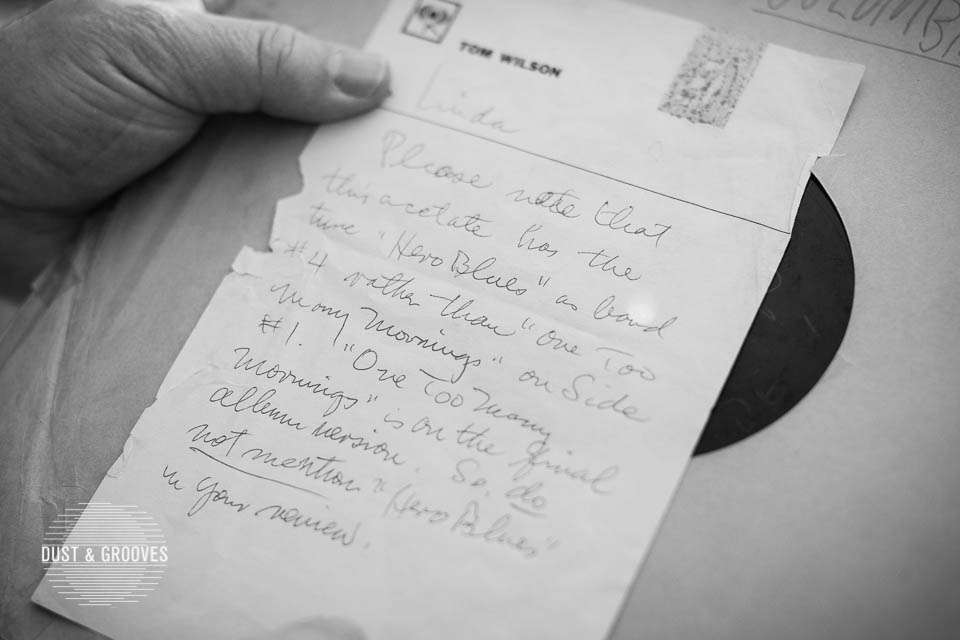 COLUMBI
TOM WILSON
Linda
Please note that
this acetate has the
tune "Hero Blues" as band
#4 rather than "One Too
Many Mornings" on Side
#1. "One Too Many
Mornings" is on the final
album version. So, do
not mention "Hero Blues"
in your review.
DUST & GROOVES